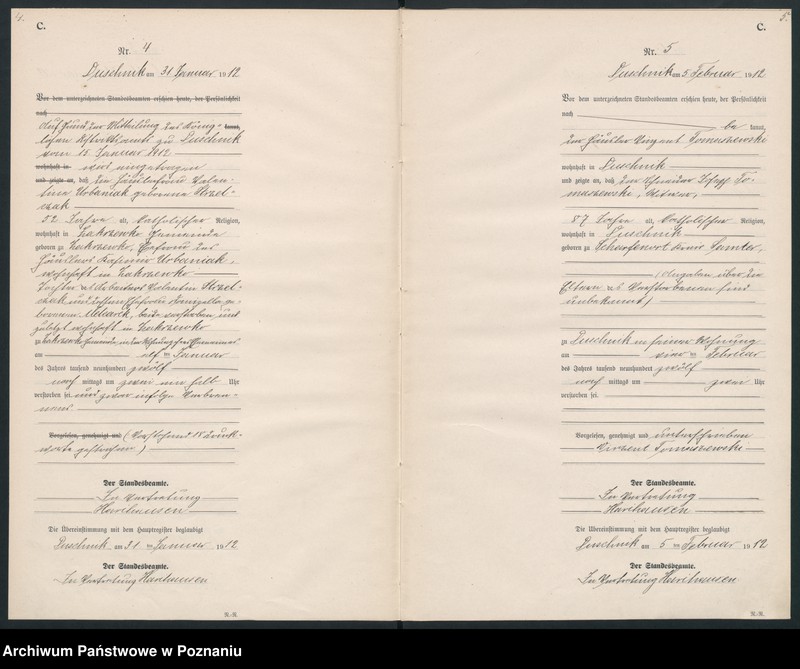 4.
C.
Nr. 4
Duschnik am 31 Januar 1912
Vor dem unterzeichneten Standesbeamten erschien heute, der Persönlichkeit
nach
Auf Grund der Mitteilung des König- kannt,
lichen Distriktsamts zu Duschnik
vom 15. Januar 1912
wohnhaft in wird eingetragen
und zeigte an, daß die Häuslerfrau Valen-
tine Urbaniak geborene Strzel-
czak
52 Jahre alt, katholischer Religion,
wohnhaft in Zakrzewko Gemeinde
geboren zu Zakrzewko, Ehefrau des
Häuslers Kasimir Urbaniak,
wohnhaft in Zakrzewko
Tochter des Arbeiters Valentin Strzel-
czak und dessen Ehefrau ge-
borenen beide verstorben und
zuletzt wohnhaft in Zakrzewko
zu Zakrzewko Gemeinde, in der Wohnung ihres Ehemannes
am elf ten Januar
des Jahres tausend neunhundert zwölf
nach mittags um zwei ein halb Uhr
verstorben sei und zwar infolge Verbren-
nens.
Vorgelesen, genehmigt und (Vorstehend 18 Druck-
worte gestrichen.)
Der Standesbeamte.
In Vertretung
Harihausen
Die Übereinstimmung mit dem Hauptregister beglaubigt
Duschnik am 31 ten Januar 1912
Der Standesbeamte.
In Vertretung Harihausen
R.-R.
5.
C.
Nr. 5
Duschnik am 5 Februar 1912
Vor dem unterzeichneten Standesbeamten erschien heute, der Persönlichkeit
nach
be kannt,
der Häusler Vinzent Tomaszewski
wohnhaft in Duschnik
und zeigte an, daß der Schneider Josef To-
maszewski, Witwer,
87 Jahre alt, katholischer Religion,
wohnhaft in Duschnik
geboren zu Scharfenort Kreis Samter,
(Angaben über die
Eltern des Verstorbenen sind
unbekannt)
zu Duschnik in seiner Wohnung
am vier ten Februar
des Jahres tausend neunhundert zwölf
nach mittags um zwei Uhr
verstorben sei.
Vorgelesen, genehmigt und unterschrieben
Vinzent Tomaszewski
Der Standesbeamte.
In Vertretung
Harihausen
Die Übereinstimmung mit dem Hauptregister beglaubigt
Duschnik am 5 ten Februar 1912
Der Standesbeamte.
In Vertretung Harihausen
R.-R.
Archiwum Państwowe w Poznaniu